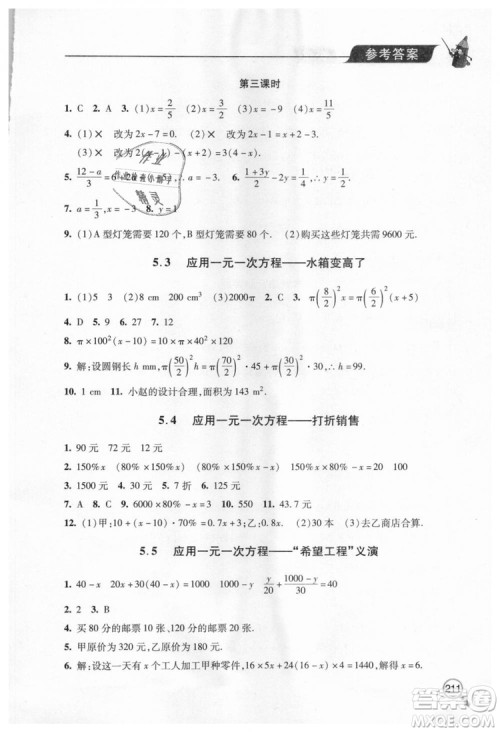 参考答案
第三课时
1. C 2. A 3. (1)x=2/5 (2)x=1/3 (3)x=-9 (4)x=11/5
4. (1)× 改为2x-7=0. (2)×
(3)× 改为2(x-1)-(x+2)=0.
5. (12-a)/3=6 6. (1+3y)/2-2y=1
7. a=1/3, x=-3 8. y=1
9. (1)A型灯笼需要120个,B型灯笼需要80个. (2)购买这些灯笼共需要9600元.
5.3 应用一元一次方程——水箱变高了
1. (1)5 3 (2)8 cm (3)10 m 2. C 3. π(8/2)²x=π(6/2)²(x+5)
4. D 5. 9 6. 27 7. 12
8. π×100²(x-10)=10×10×20
9. 解:设圆钢长h mm,π(50/2)²h=π(70/2)²·45+π(30/2)²·30,h=99.
10. 1 cm 11. 小赵的设计合理,面积为143 m².
5.4 应用一元一次方程——打折销售
1. 90元 72元 12元
2. 150%x (80%×150%x) (80%×150%x-x)
3. 1500元 4. 230元 5. 7折 6. 550
7. A 8. C 9. 6000×80%-x=10%x 10. 44 11. 43.7元
12. (1)甲:10+(x-10)·70%;乙:0.8x. (2)30本 (3)去乙商店算合算.
5.5 应用一元一次方程——“希望工程”义演
1. 40-x 20x+30(40-x)=1000 y/20+(1000-y)/30=40
2. 2 3. B
4. 买80分的邮票10张,买2元的邮票20张.
5. 甲原价为20元,乙原价为80元.
6. 解:设这一天有x个工人加工甲种零件,16×5x+24×4(16-x)=1440,解得x=6.
211
答案圈